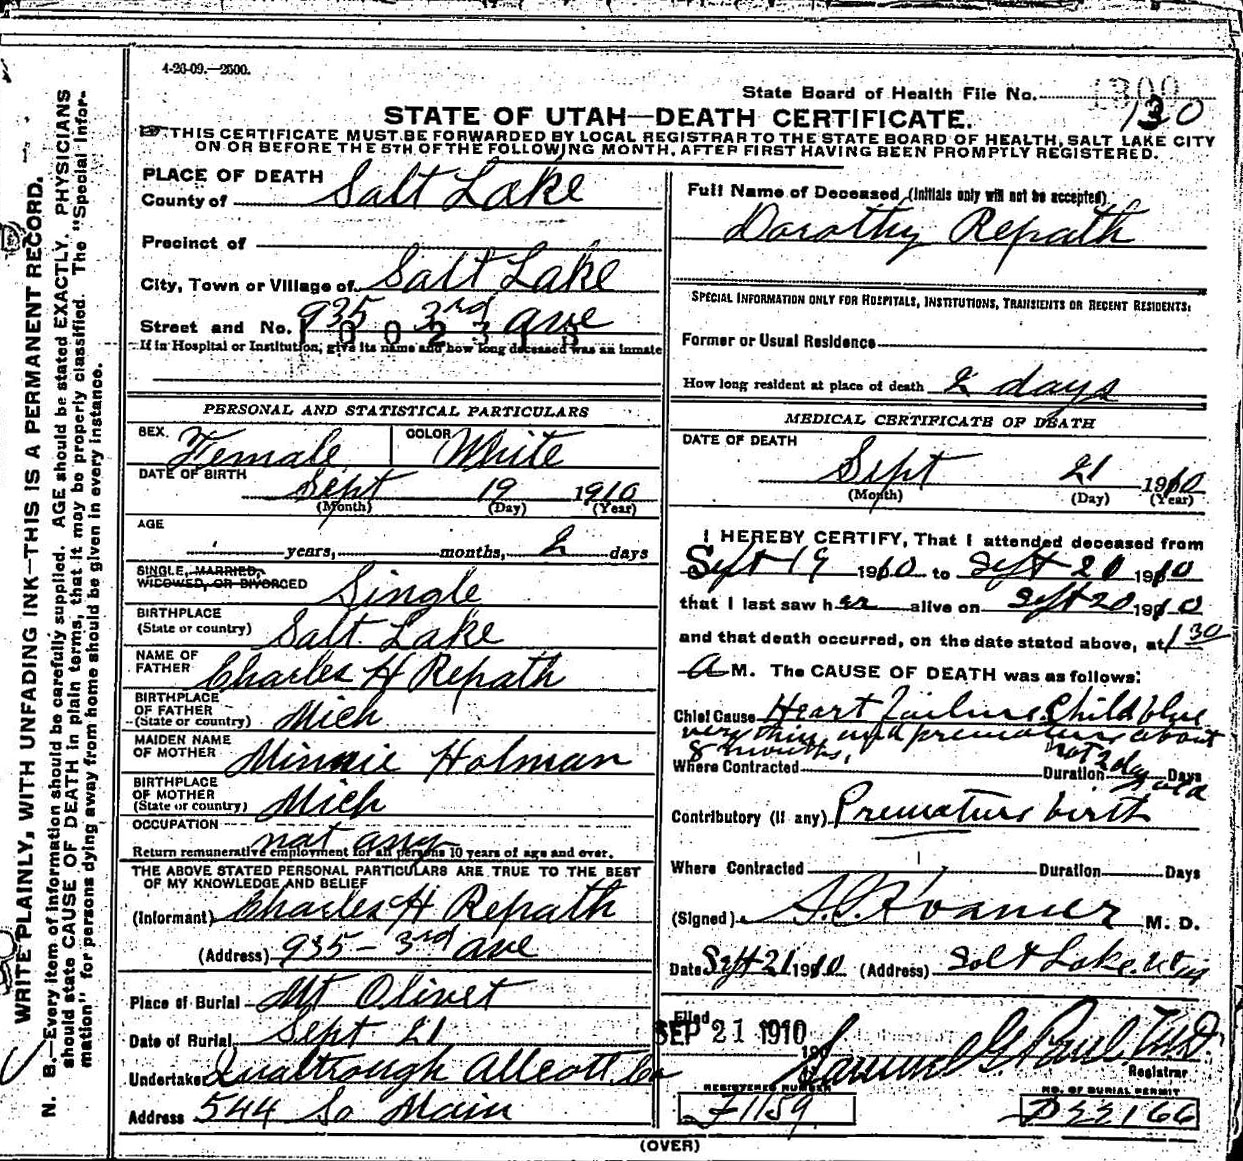 4-26-09.—2500.
State Board of Health File No.
130
STATE OF UTAH—DEATH CERTIFICATE.
THIS CERTIFICATE MUST BE FORWARDED BY LOCAL REGISTRAR TO THE STATE BOARD OF HEALTH, SALT LAKE CITY
ON OR BEFORE THE 5TH OF THE FOLLOWING MONTH, AFTER FIRST HAVING BEEN PROMPTLY REGISTERED.
WRITE PLAINLY, WITH UNFADING INK—THIS IS A PERMANENT RECORD.
N. B.—Every item of information should be carefully supplied. AGE should be stated EXACTLY. PHYSICIANS
should state CAUSE OF DEATH in plain terms, that it may be properly classified. The "Special Infor-
mation" for persons dying away from home should be given in every instance.
PLACE OF DEATH
County of Salt Lake
Precinct of
City, Town or Village of Salt Lake
Street and No. 935 3rd ave
1002313
If in Hospital or Institution, give its name and how long deceased was an inmate
PERSONAL AND STATISTICAL PARTICULARS
SEX. Female COLOR White
DATE OF BIRTH
Sept 19 1910
(Month) (Day) (Year)
AGE
years, months, 2 days
SINGLE, MARRIED,
WIDOWED, OR DIVORCED Single
BIRTHPLACE
(State or country) Salt Lake
NAME OF
FATHER Charles H Repath
BIRTHPLACE
OF FATHER
(State or country) Mich
MAIDEN NAME
OF MOTHER Minnie Holman
BIRTHPLACE
OF MOTHER
(State or country) Mich
OCCUPATION not any
Return remunerative employment for all persons 10 years of age and over.
THE ABOVE STATED PERSONAL PARTICULARS ARE TRUE TO THE BEST
OF MY KNOWLEDGE AND BELIEF
(Informant) Charles H Repath
(Address) 935 - 3rd ave
Place of Burial Mt Olivet
Date of Burial Sept 21
Undertaker Allcott Co
Address 544 So Main
Full Name of Deceased (Initials only will not be accepted)
Dorothy Repath
SPECIAL INFORMATION ONLY FOR HOSPITALS, INSTITUTIONS, TRANSIENTS OR RECENT RESIDENTS:
Former or Usual Residence
How long resident at place of death 2 days
MEDICAL CERTIFICATE OF DEATH
DATE OF DEATH
Sept 21 1910
(Month) (Day) (Year)
I HEREBY CERTIFY, That I attended deceased from
Sept 19 1910 to Sept 20 1910
that I last saw her alive on Sept 20 1910
and that death occurred, on the date stated above, at 1 30
A M. The CAUSE OF DEATH was as follows:
Chief Cause Heart failure. Child blue
very thin and premature about
8 months, not 2 days old
Where Contracted Duration Days
Contributory (if any) Premature birth
Where Contracted Duration Days
(Signed) M. D.
Date Sept 21 1910 (Address) Salt Lake
Filed
SEP 21 1910
190
Samuel G. Paul M.D.
Registrar
REGISTERED NUMBER
F1159
NO. OF BURIAL PERMIT
D22166
(OVER)